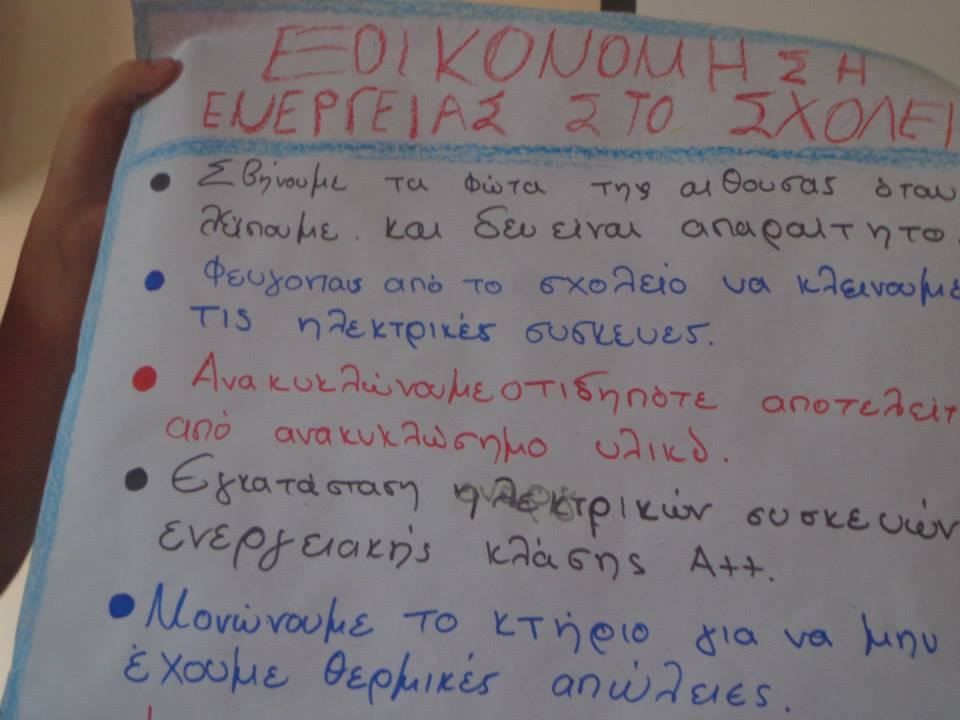 ΕΞΟΙΚΟΝΟΜΗΣΗ
ΕΝΕΡΓΕΙΑΣ ΣΤΟ ΣΧΟΛΕΙ
• Σβήνουμε τα φώτα της αίθουσας όταν
λείπουμε. και δεν είναι απαραίτητο.
• Φεύγοντας από το σχολείο να κλείνουμε
τις ηλεκτρικές συσκευες.
• Ανακυκλώνουμε οτιδηπότε αποτελείτ
από ανακυκλώσημο υλικό.
• Εγκατάσταση ηλεκτρικών συσκευών
ενεργειακής κλάσης Α++.
• Μονώνουμε το κτήριο για να μην
έχουμε θερμικές απώλειες.